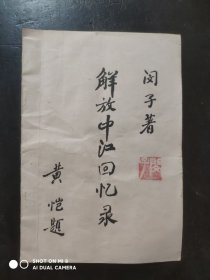 闵子著
解放中江回忆录
黄恺题
SHOT ON MI 9
AI TRIPLE CAMERA